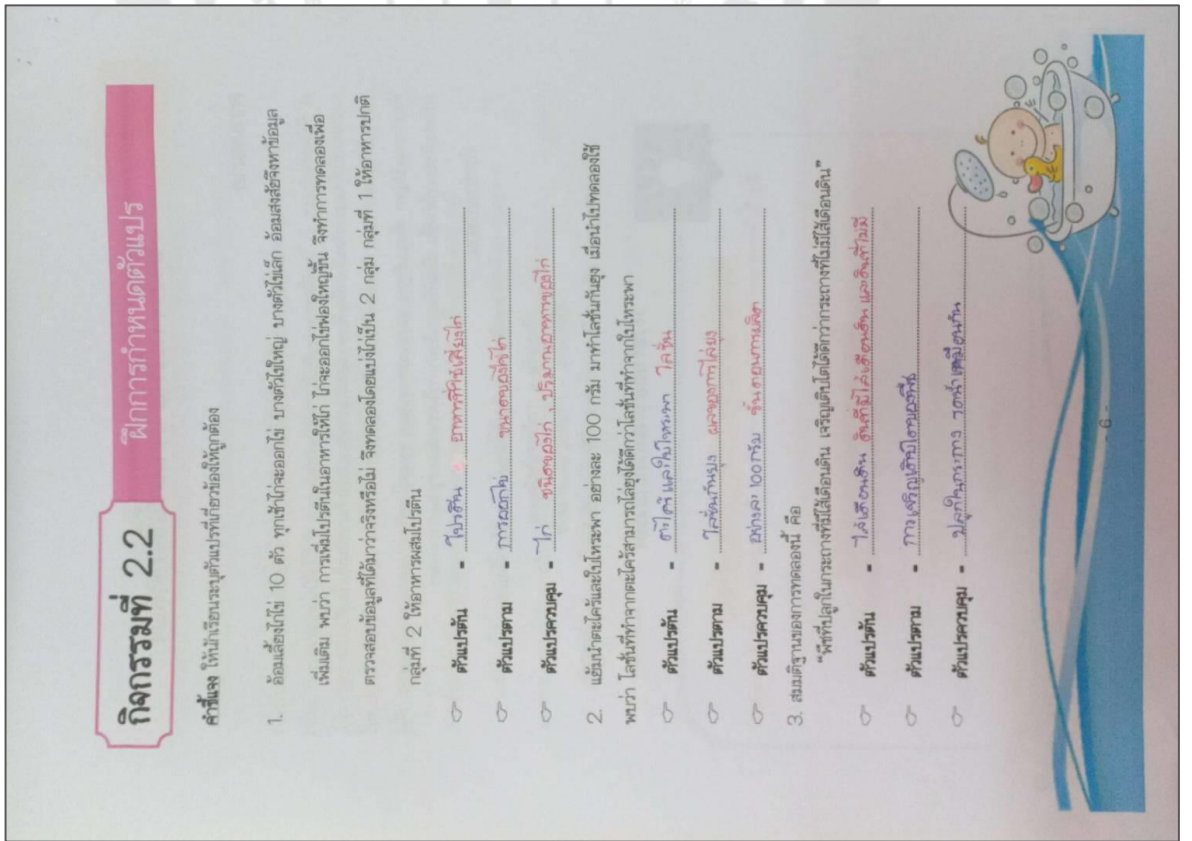 กิจกรรมที่ 2.2
ฝึกการกำหนดตัวแปร
คำชี้แจง ให้นักเรียนระบุตัวแปรที่เกี่ยวข้องให้ถูกต้อง
1. อ้อมเลี้ยงไก่ไข่ 10 ตัว ทุกเช้าไก่จะออกไข่ บางตัวไข่ใหญ่ บางตัวไข่เล็ก อ้อมสงสัยจึงหาข้อมูล
เพิ่มเติม พบว่า การเพิ่มโปรตีนในอาหารให้ไก่ ไก่จะออกไข่ฟองใหญ่ขึ้น จึงทำการทดลองเพื่อ
ตรวจสอบข้อมูลที่ได้มาว่าจริงหรือไม่ จึงทดลองโดยแบ่งไก่เป็น 2 กลุ่ม กลุ่มที่ 1 ให้อาหารปกติ
กลุ่มที่ 2 ให้อาหารผสมโปรตีน
ตัวแปรต้น - โปรตีน อาหารที่ใช้เลี้ยงไก่
ตัวแปรตาม - การออกไข่ ขนาดของไข่ไก่
ตัวแปรควบคุม - ไก่ ชนิดของไก่, ปริมาณอาหารของไก่
2. แย้มนำตะไคร้และใบโหระพา อย่างละ 100 กรัม มาทำโลชั่นกันยุง เมื่อนำไปทดลองใช้
พบว่า โลชั่นที่ทำจากตะไคร้สามารถไล่ยุงได้ดีกว่าโลชั่นที่ทำจากใบโหระพา
ตัวแปรต้น - ตะไคร้และใบโหระพา โลชั่น
ตัวแปรตาม - โลชั่นกันยุง ผลของการไล่ยุง
ตัวแปรควบคุม - อย่างละ 100 กรัม ขั้นตอนการผลิต
3. สมมติฐานของการทดลองนี้ คือ
“พืชที่ปลูกในกระถางที่มีไส้เดือนดิน เจริญเติบโตได้ดีกว่ากระถางที่ไม่มีไส้เดือนดิน”
ตัวแปรต้น - ไส้เดือนดิน ดินที่มีไส้เดือนดิน และดินที่ไม่มี
ตัวแปรตาม - การเจริญเติบโตของพืช
ตัวแปรควบคุม - ปลูกในกระถาง รดน้ำเหมือนกัน
- 6 -